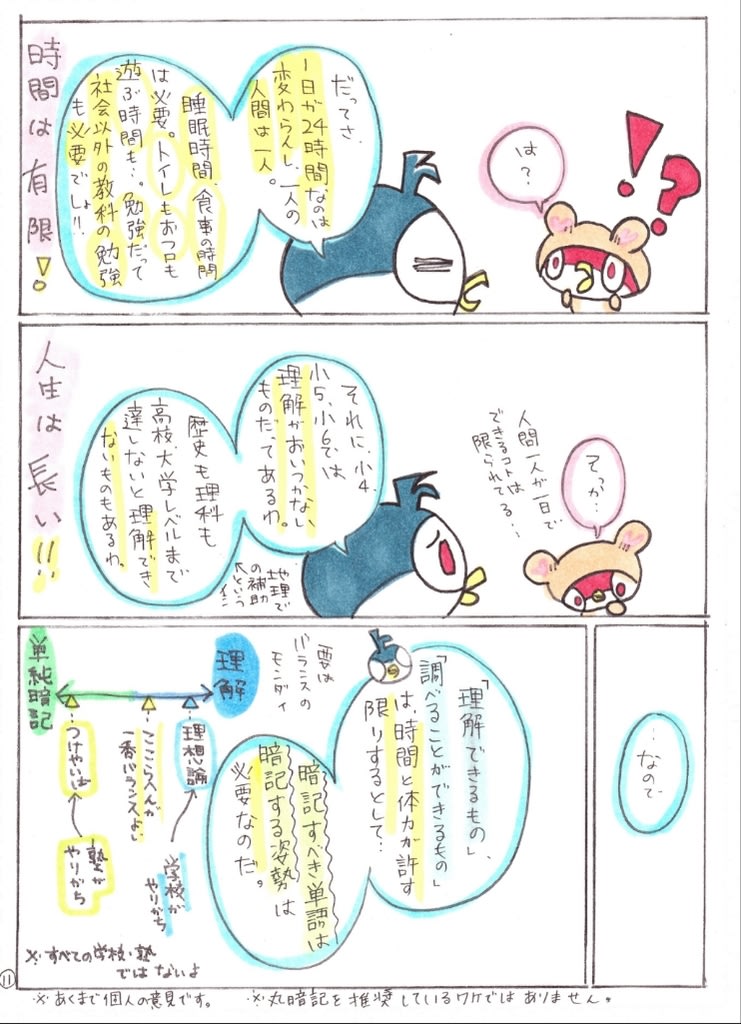 時間は有限！
は？
だってさ、
1日が24時間なのは
変わらんし、一人の
人間は一人。
睡眠時間、食事の時間
は必要。トイレもおフロも
遊ぶ時間も…。勉強だって
社会以外の教科の勉強
も必要でしょ!!
！？
人生は長い!!
そっか…
人間一人が一日で
できるコトは
限られてる…
それに、小4、
小5、小6では
理解がおいつかない
ものだってあるわ。
歴史も理科も
高校、大学レベルまで
達しないと理解でき
ないものもあるわ。
地理で
の補助
…なので
「理解できるもの」、
「調べることができるもの」
は、時間と体力が許す
限りするとして…
暗記すべき単語は
暗記する姿勢は
必要なのだ。
要は
バランスの
モンダイ
理解
単純暗記
理想論
ここらへんが
一番バランスよい
つけやいば
学校が
やりがち
塾が
やりがち
※すべての学校・塾
ではないよ
11
※あくまで個人の意見です。
※丸暗記を推奨しているワケではありません。